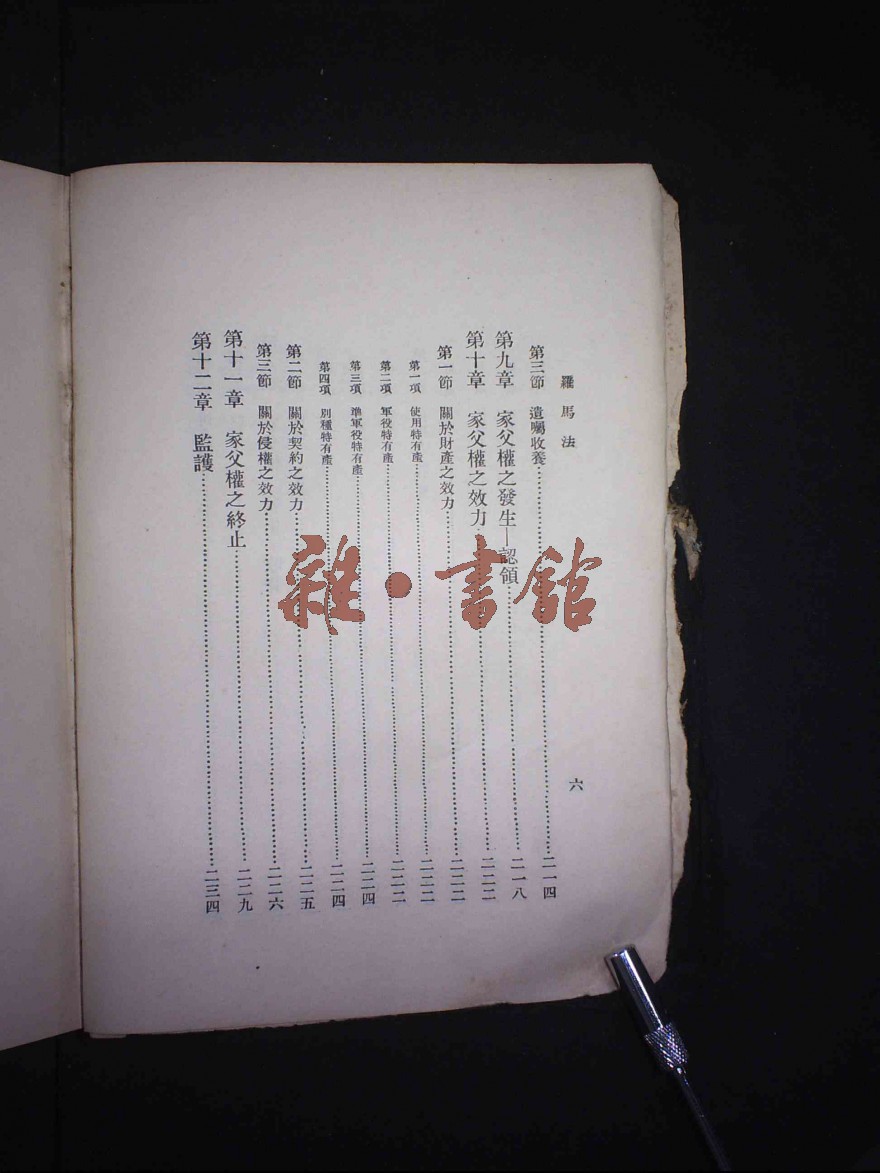 羅馬法
六
第三節 遺囑收養……二一四
第九章 家父權之發生—認領……二一八
第十章 家父權之效力……二二二
第一節 關於財產之效力……二二二
第一項 使用特有產……二二二
第二項 軍役特有產……二二二
第三項 準軍役特有產……二二四
第四項 別種特有產……二二四
第二節 關於契約之效力……二二五
第三節 關於侵權之效力……二二六
第十一章 家父權之終止……二二九
第十二章 監護……二三四
雜·書館